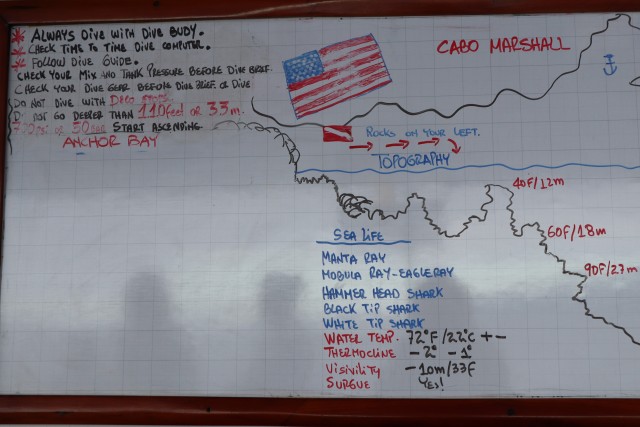 * Always Dive with Dive Budy.
* Check Time to Time Dive Computer.
* Follow Dive Guide.
Check Your Mix and Tank Pressure Before Dive Brief.
Check your Dive Gear Before Dive Brief or Dive
Do Not Dive with Deco
Do not Go Deeper than 110feet or 33m.
50bar Start Ascending
Anchor Bay
Cabo Marshall
Rocks on Your Left.
Topography
40F/12m
60F/18m
90F/27m
Sea Life
Manta Ray
Mobula Ray-Eagleray
Hammer Head Shark
Black Tip Shark
White Tip Shark
Water Temp. 72°F/22°C +-
Thermocline -2° -1°
Visivility -10m/33F
Surgue Yes!